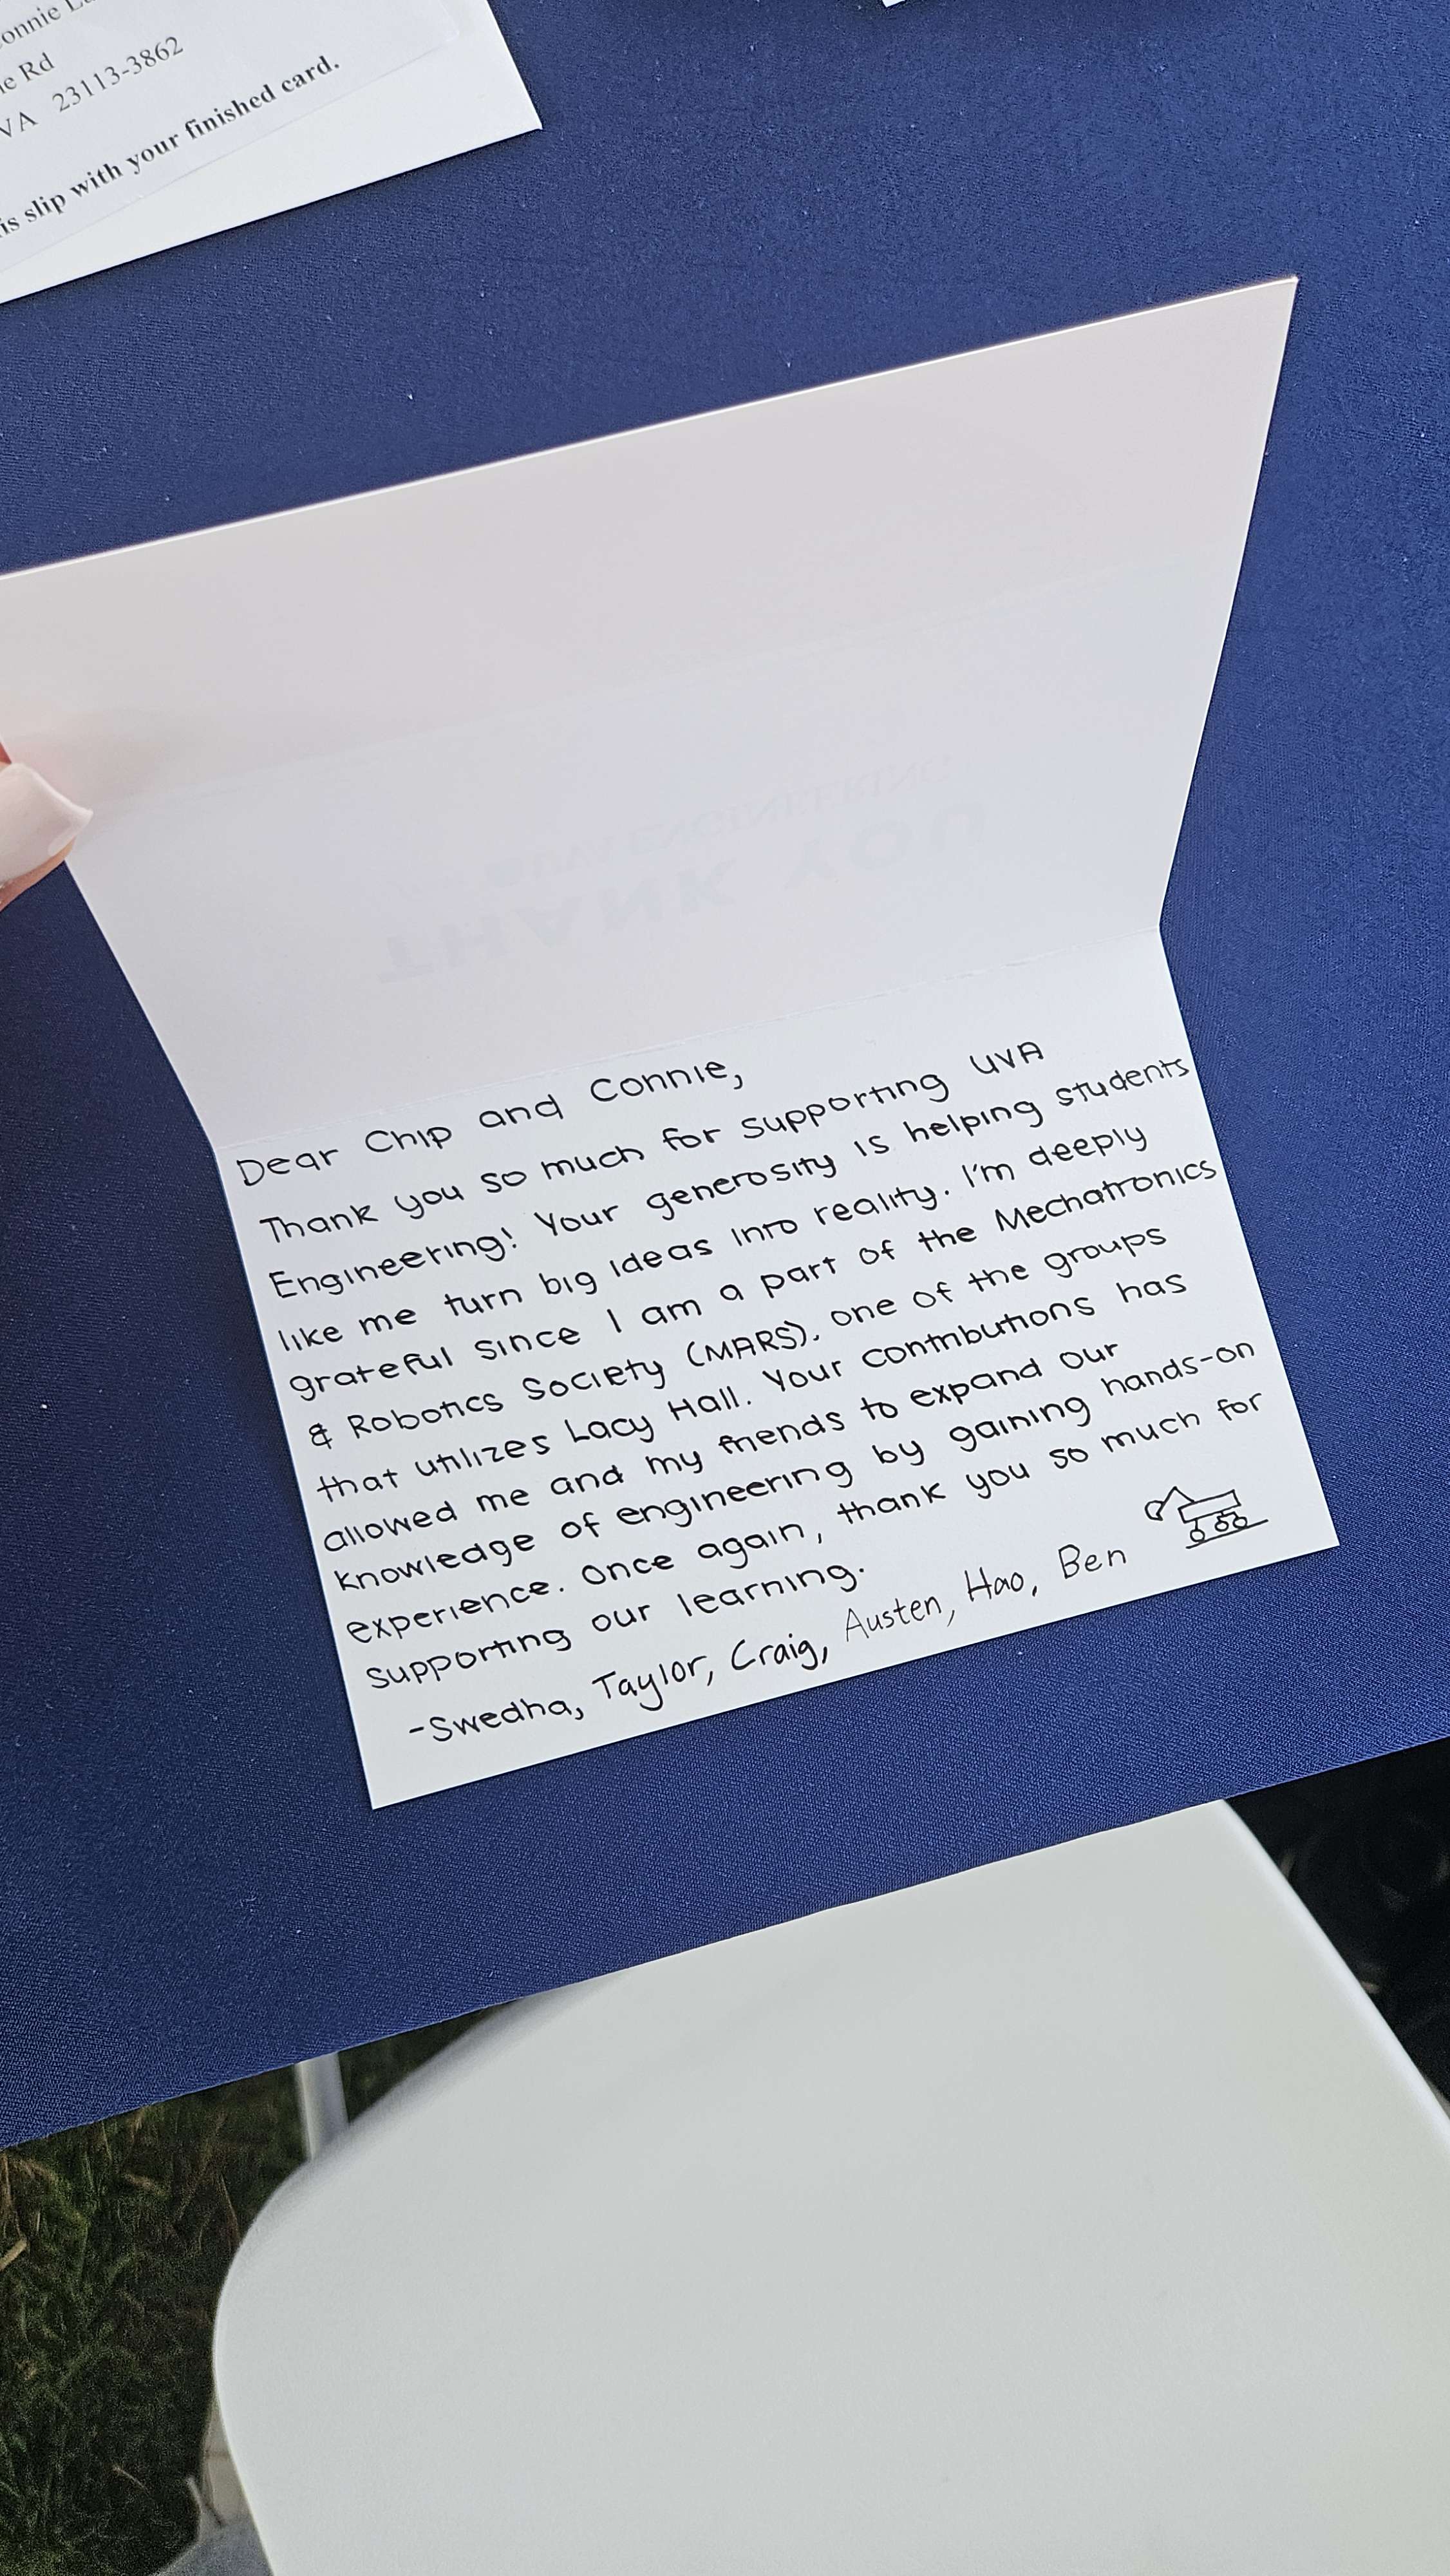 onnie
ie Rd
VA 23113-3862
is slip with your finished card.
THANK YOU
ENGINEERING
Dear Chip and Connie,
Thank you so much for supporting UVA
Engineering! Your generosity is helping students
like me turn big ideas into reality. I'm deeply
grateful since I am a part of the Mechatronics
& Robotics Society (MARS), one of the groups
that utilizes Lacy Hall. Your contributions has
allowed me and my friends to expand our
knowledge of engineering by gaining hands-on
experience. Once again, thank you so much for
supporting our learning.
-Swedha, Taylor, Craig, Austen, Hao, Ben